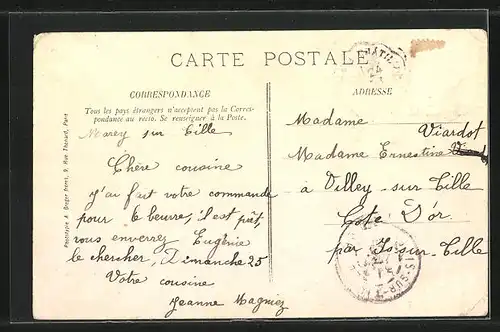 CARTE POSTALE
CORRESPONDANCE
Tous les pays étrangers n'acceptent pas la Corres-
pondance au recto. Se renseigner à la Poste.
Marey sur Tille
Chère cousine
J'ai fait votre commande
pour le beurre, il est prêt,
vous enverrez Eugénie
le chercher, Dimanche 25
Votre cousine
Jeanne Magniez
ADRESSE
Madame
Viardot
Madame Ernestine
à Villey-sur-Tille
Côte D'or
par Is-sur-Tille
IS-SUR-TILLE